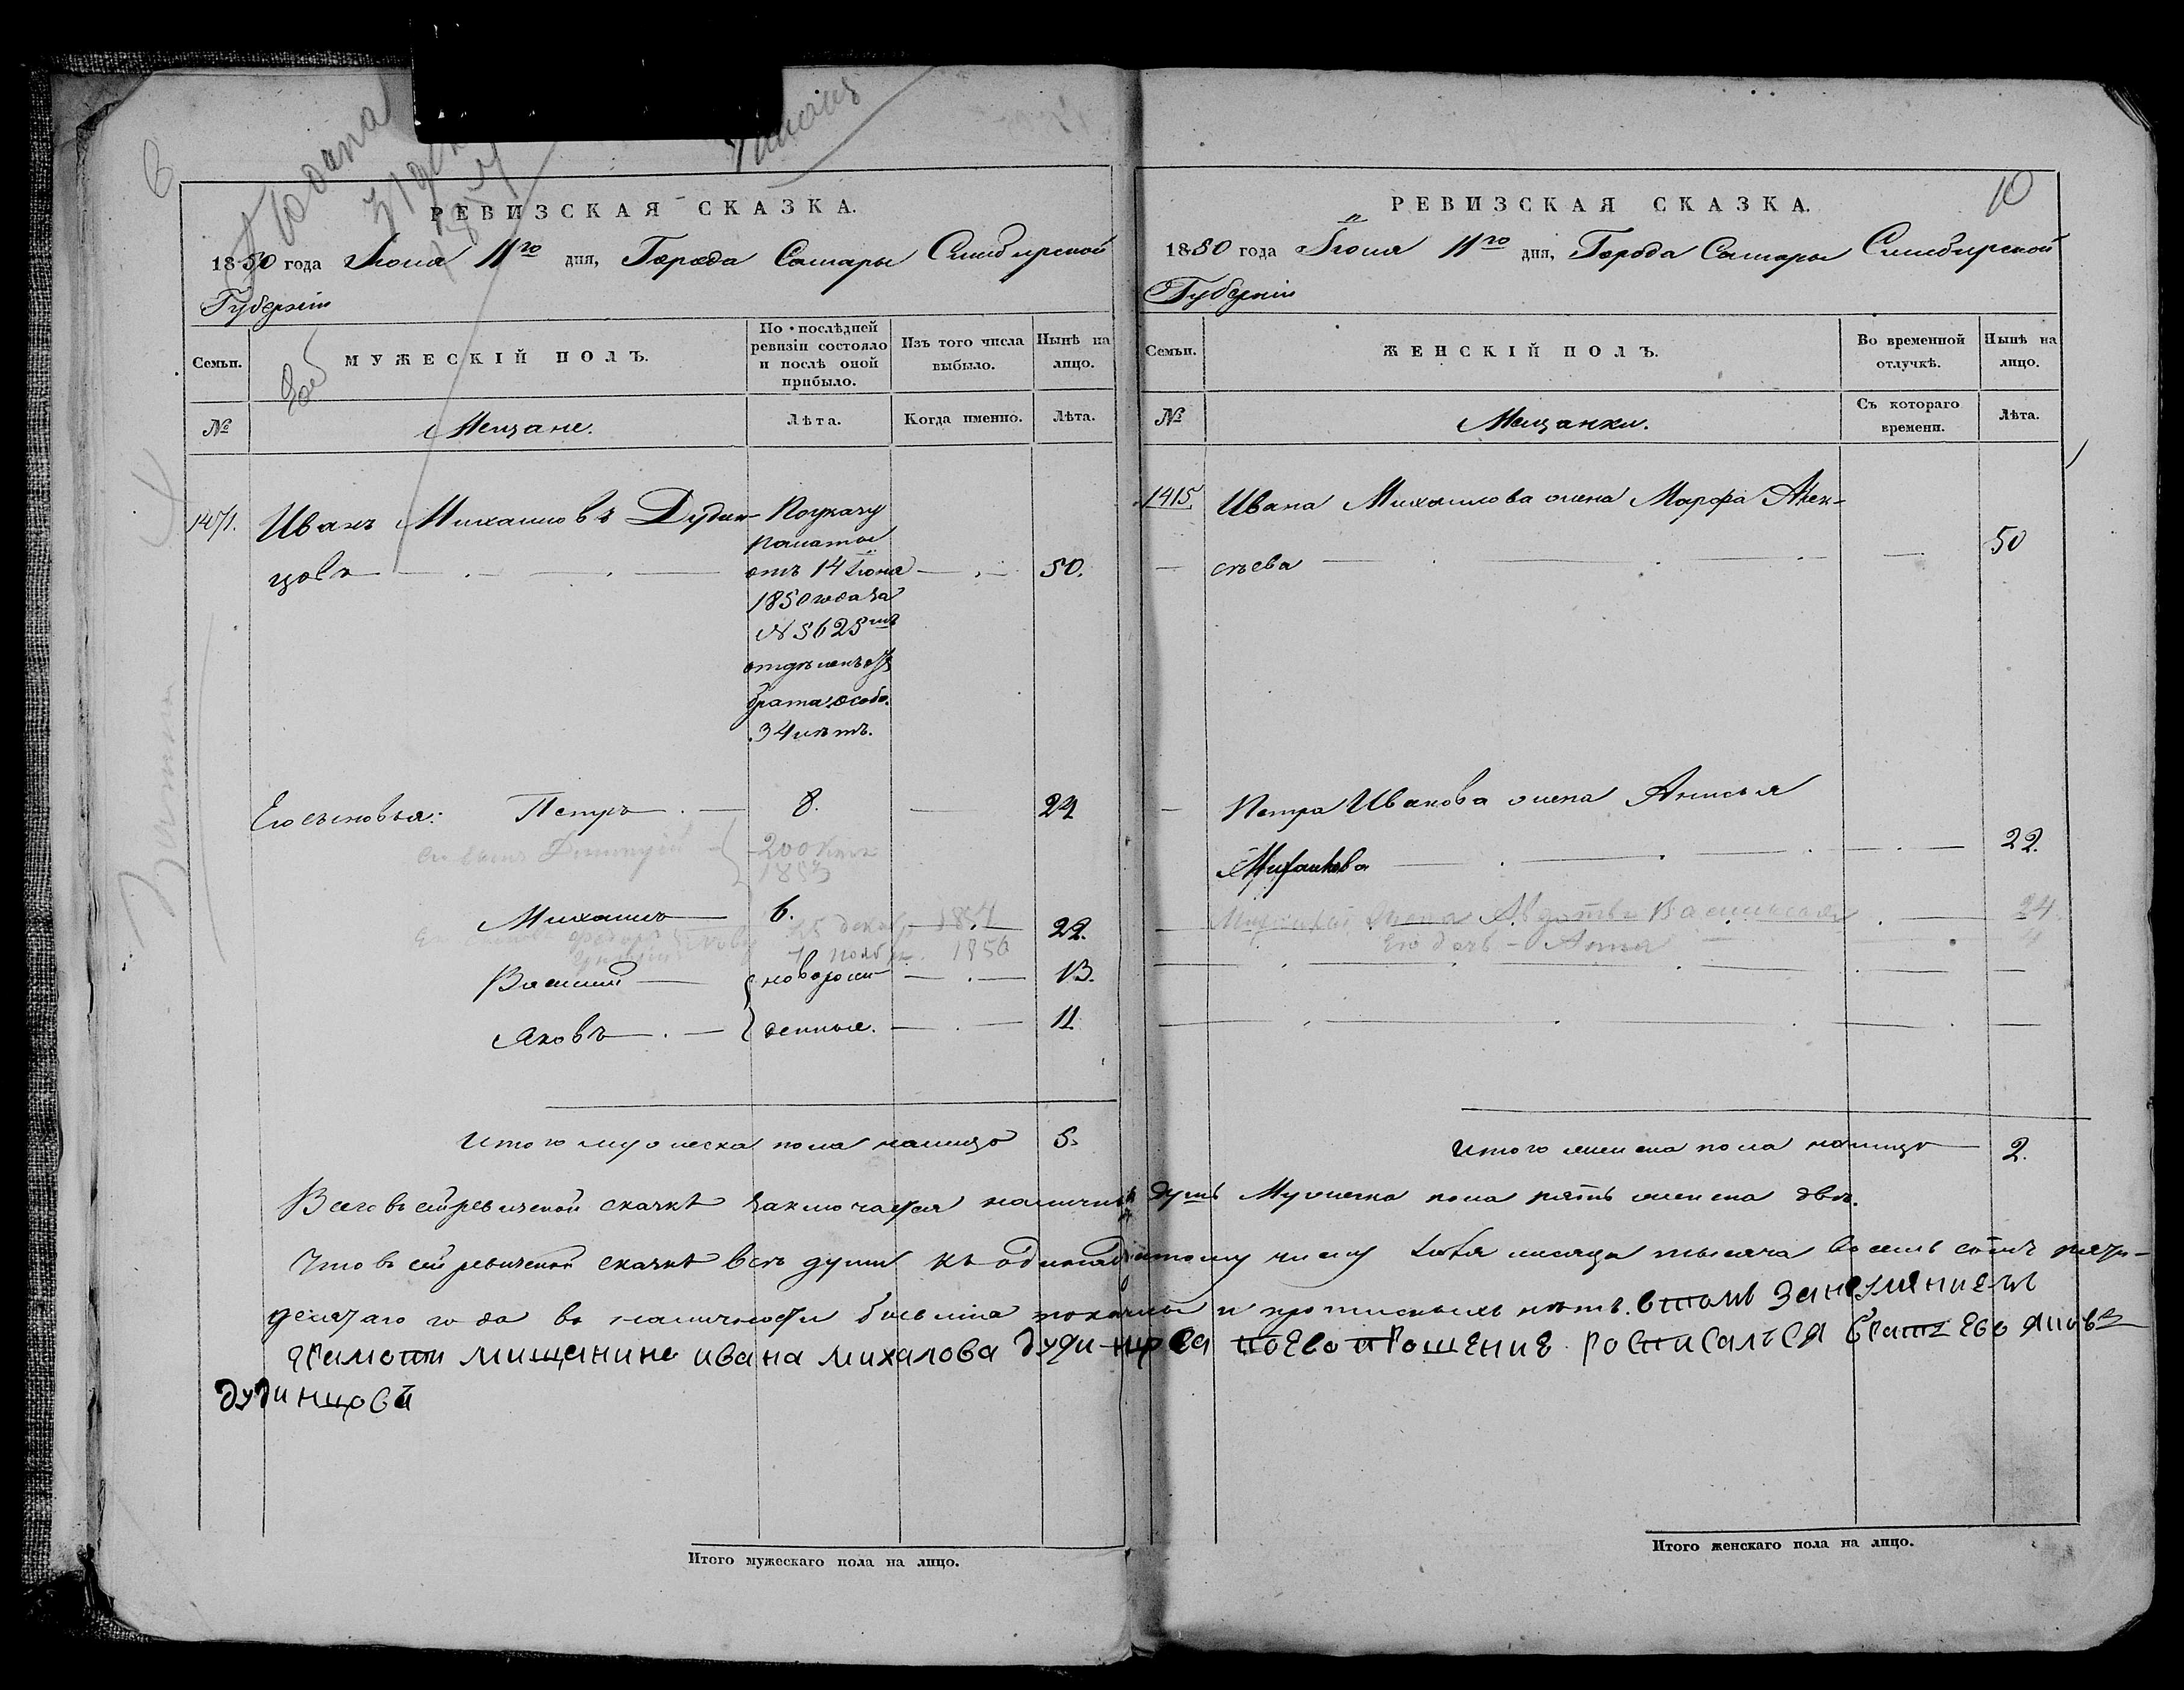 РЕВИЗСКАЯ СКАЗКА.
1850 года Июня 11го дня, Города Самары Симбирской
Губернии
Семьи.
МУЖЕСКІЙ ПОЛЪ.
По послѣдней ревизіи состояло и послѣ оной прибыло.
Изъ того числа выбыло.
Нынѣ на лицо.
№
Мещане.
Лѣта.
Когда именно.
Лѣта.
1471. Иванъ Михаиловъ Дудин-
цовъ
По указу
палаты
отъ 14 Іюня
1850 года за
№ 5625мъ
отдѣленъ отъ
брата особо.
34 лѣтъ.
50.
Его сыновья: Петръ 8. 24
200
1853
Михаилъ 6. 22.
Федоръ 25 декаб 1854
7 ноябр. 1856
Василій новорож- 13.
Яковъ денные. 11
Итого мужеска пола налицо 5.
РЕВИЗСКАЯ СКАЗКА.
10
1850 года Іюня 11го дня, Города Самары Симбирской
Губерніи
Семьи.
ЖЕНСКІЙ ПОЛЪ.
Во временной отлучкѣ.
Нынѣ на лицо.
№
Мещанки.
Съ котораго времени.
Лѣта.
1415 Ивана Михаилова жена Марфа Алек-
сѣева 50
Петра Иванова жена Анисья
Михаилова 22.
жена Авдотья Васильева 24
Его дочь - Анна 4
Итого женска пола налицо 2.
Всего въ сей ревизской сказкѣ заключается наличныхъ душъ Мужеска пола пять женска двѣ.
Что въ сей ревизской сказкѣ всѣ души къ одинадцатому числу Іюня месяца тысяча восемь сотъ пяти-
десятаго года въ наличности были показаны и прописныхъ нѣтъ. втомъ Занеумѣниемъ
Грамоти мищенине ивана михалова дудинцова поево прошение росписался братъ ево яковъ
дудинцовъ
Итого мужескаго пола на лицо.
Итого женскаго пола на лицо.